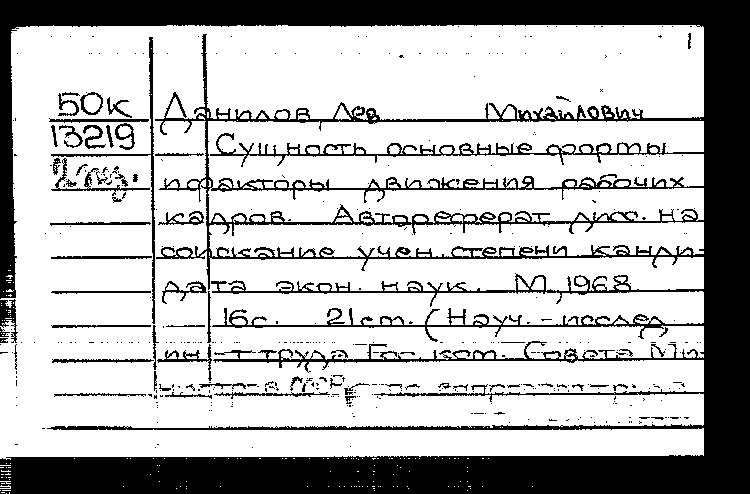 1
50к Данилов, Лев Михайлович
13219 Сущность, основные формы
2 экз. и факторы движения рабочих
кадров. Автореферат дисс. на
соискание учен. степени канди-
дата экон. наук. М., 1968
16с. 21cm. (Науч.-исслед
ин-т труда Гос. ком. Совета Ми-
нистров СССР по вопросам труда